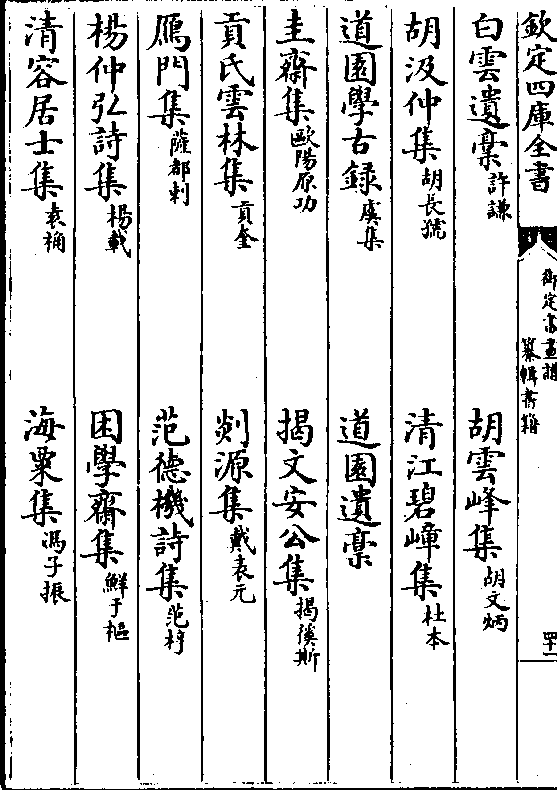 欽定四庫全書
御定書畫譜
纂輯書籍
四十一
白雲遺稾許謙
胡雲峰集胡文炳
胡汲仲集胡長孺
清江碧嶂集杜本
道園學古録虞集
道園遺稾
圭齋集歐陽原功
揭文安公集揭傒斯
貢氏雲林集貢奎
剡源集戴表元
鴈門集薩都剌
范德機詩集范梈
楊仲弘詩集楊載
困學齋集鮮于樞
清容居士集袁桷
海粟集馮子振